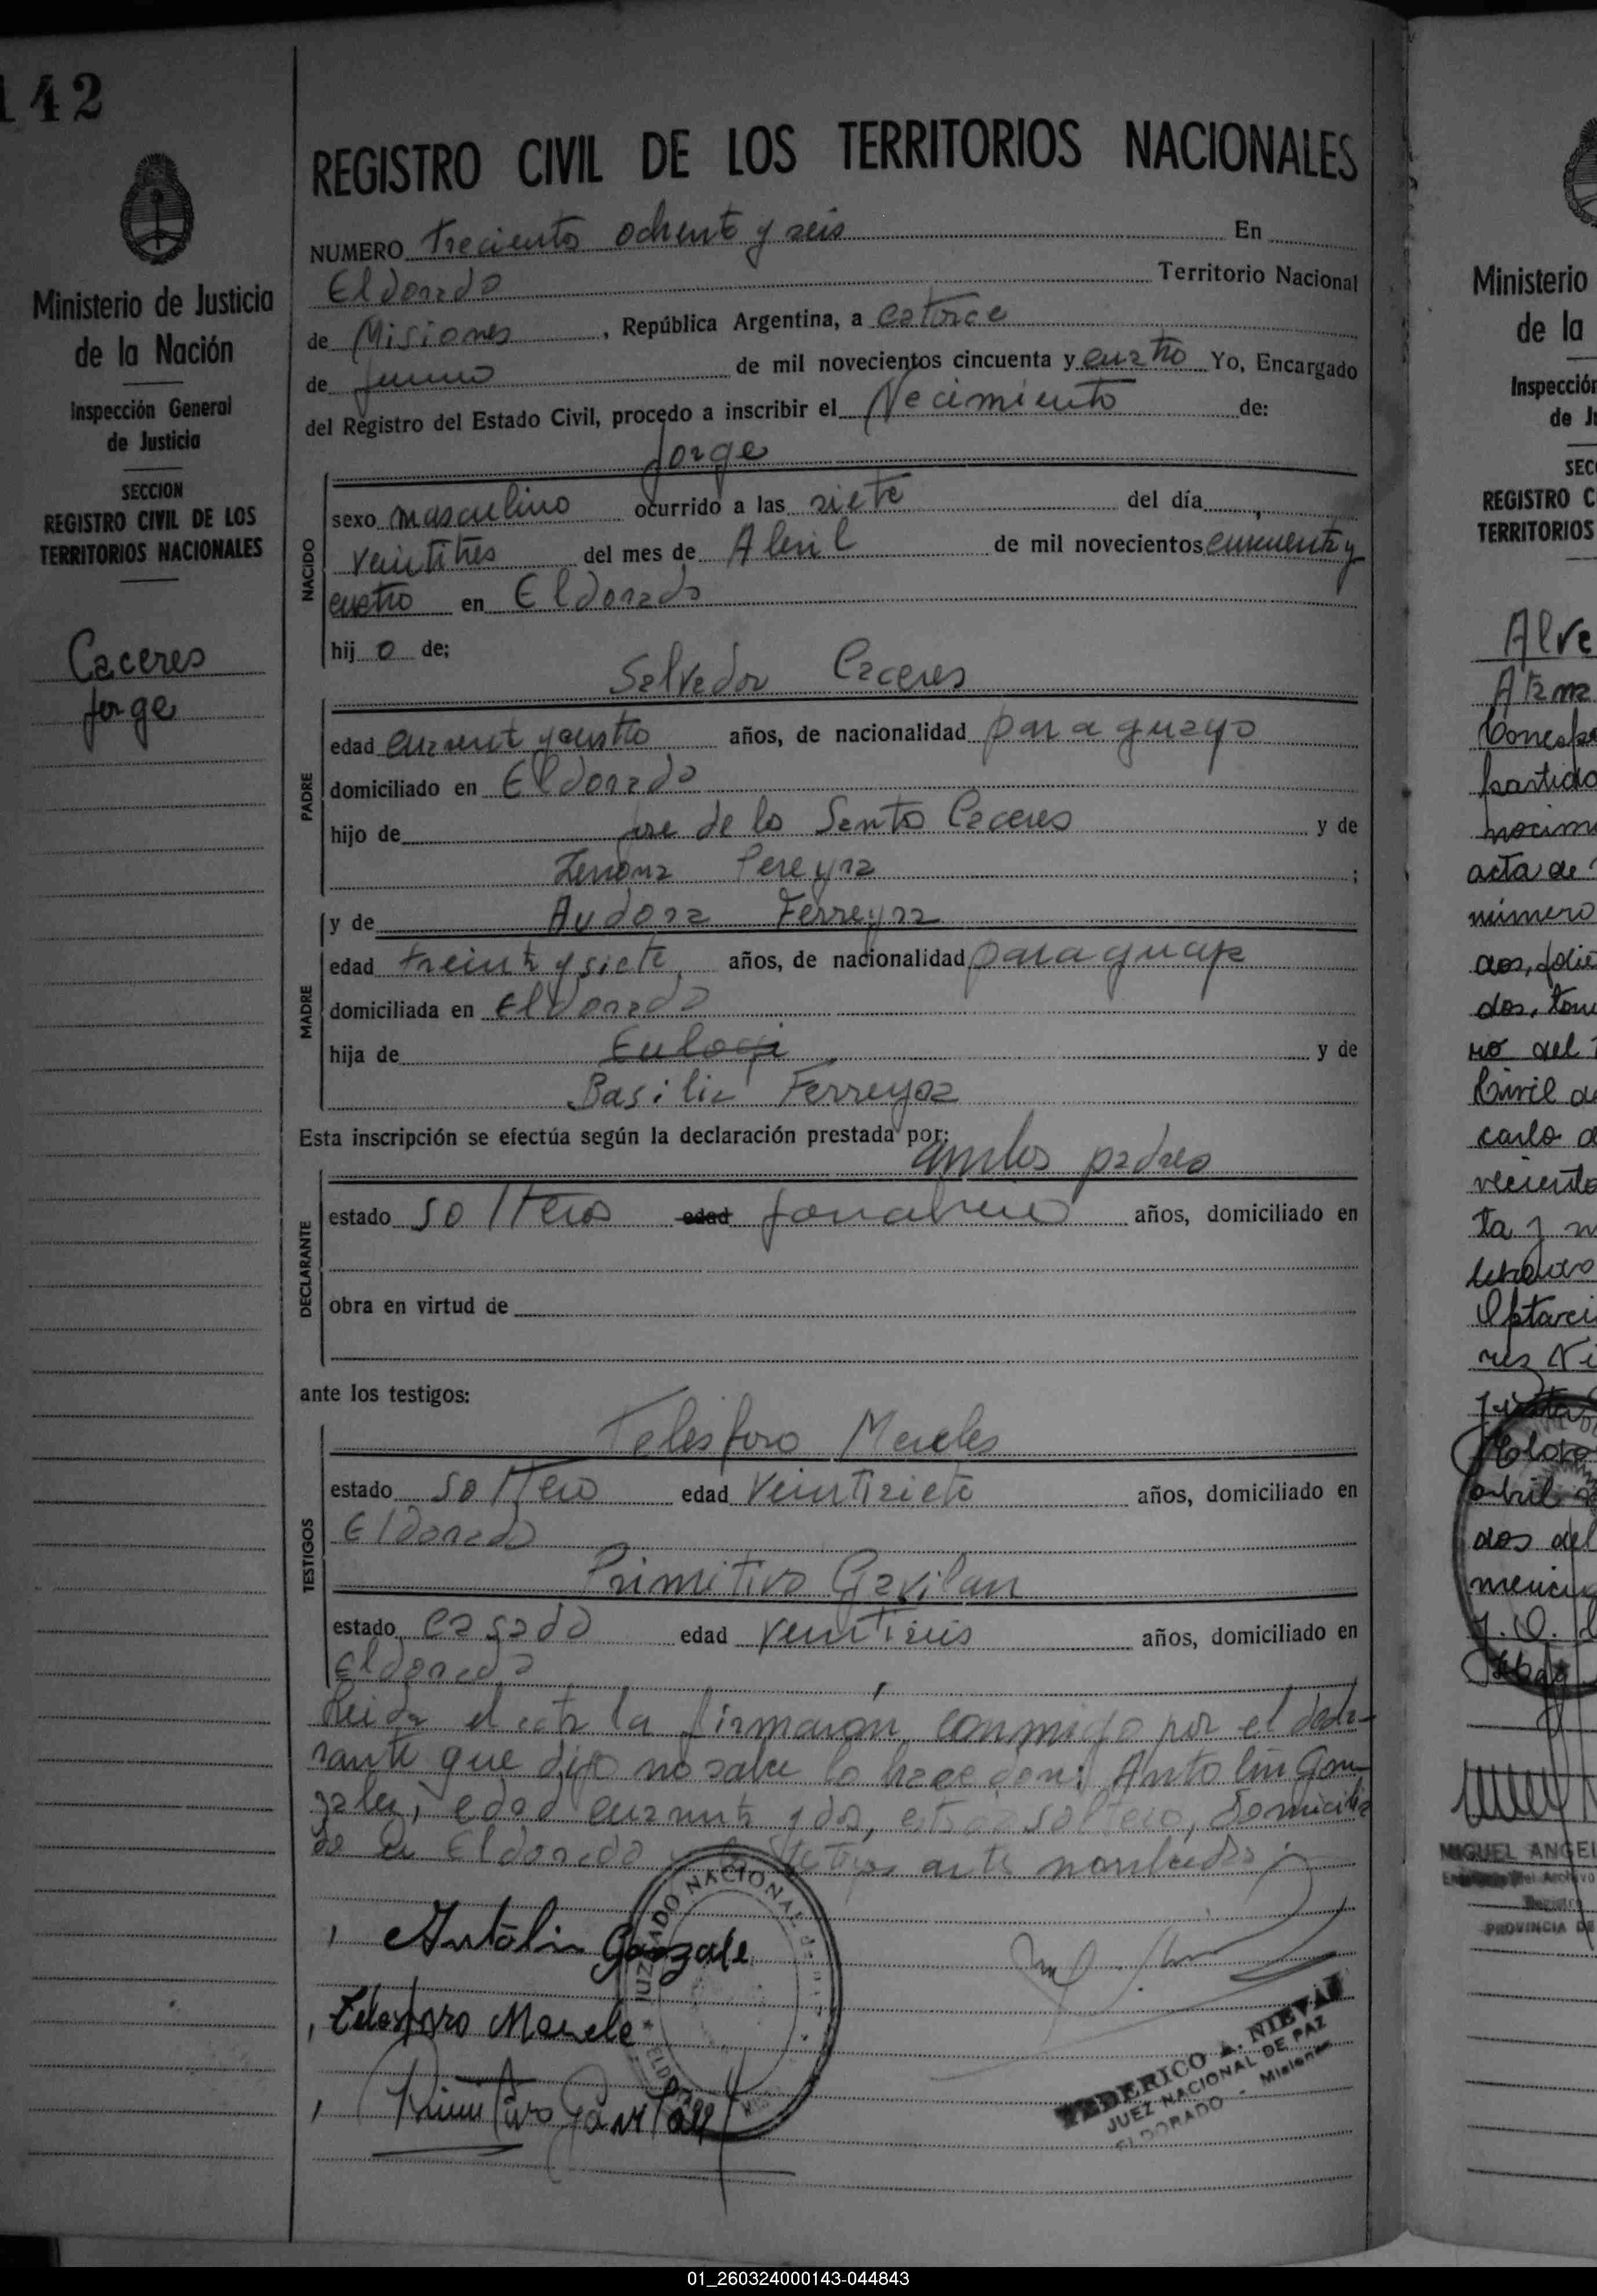 142
Ministerio de Justicia
de la Nación
Inspección General
de Justicia
SECCION
REGISTRO CIVIL DE LOS
TERRITORIOS NACIONALES
Caceres
Jorge
REGISTRO CIVIL DE LOS TERRITORIOS NACIONALES
NUMERO Treciento ochenta y seis En
Eldorado Territorio Nacional
de Misiones, República Argentina, a catorce
de Junio de mil novecientos cincuenta y cuatro Yo, Encargado
del Registro del Estado Civil, procedo a inscribir el Nacimiento de:
Jorge
NACIDO
sexo masculino ocurrido a las siete del día
veintitres del mes de Abril de mil novecientos cincuenta y
cuatro en Eldorado
hijo de;
Salvador Caceres
PADRE
edad cuarent y cuatro años, de nacionalidad paraguayo
domiciliado en Eldorado
hijo de Jose de lo Santo Caceres y de
Zenona Pereyra;
y de Audora Ferreyra
MADRE
edad treint y siete años, de nacionalidad paraguay
domiciliada en Eldorado
hija de Eulogi y de
Basilia Ferreyra
Esta inscripción se efectúa según la declaración prestada por:
ambos padres
DECLARANTE
estado solteros edad años, domiciliado en
obra en virtud de
ante los testigos:
TESTIGOS
Telesforo Mereles
estado soltero edad veintisiete años, domiciliado en
Eldorado
Primitivo Gavilan
estado casado edad veintiseis años, domiciliado en
Eldorado
Leida el acta la firmaron conmigo por el decla-
rante que dijo no saber lo hace don: Antolin Gon-
zalez, edad cuarenta y dos, estado soltero, domicilia
do en Eldorado y los testigos ante nombrados
Antolin Gonzale
JUZGADO NACIONAL
Telesforo Merele
Primitivo Gavilan
FEDERICO A. NIEVAS
JUEZ NACIONAL DE PAZ
ELDORADO - Misiones
Ministerio
de la
Inspección
de J
SEC
REGISTRO C
TERRITORIOS
Alve
partido
acta de
número
dos, ton
ro del
Civil de
ta y n
abril
dos del
MIGUEL ANGEL
PROVINCIA DE
01_260324000143-044843